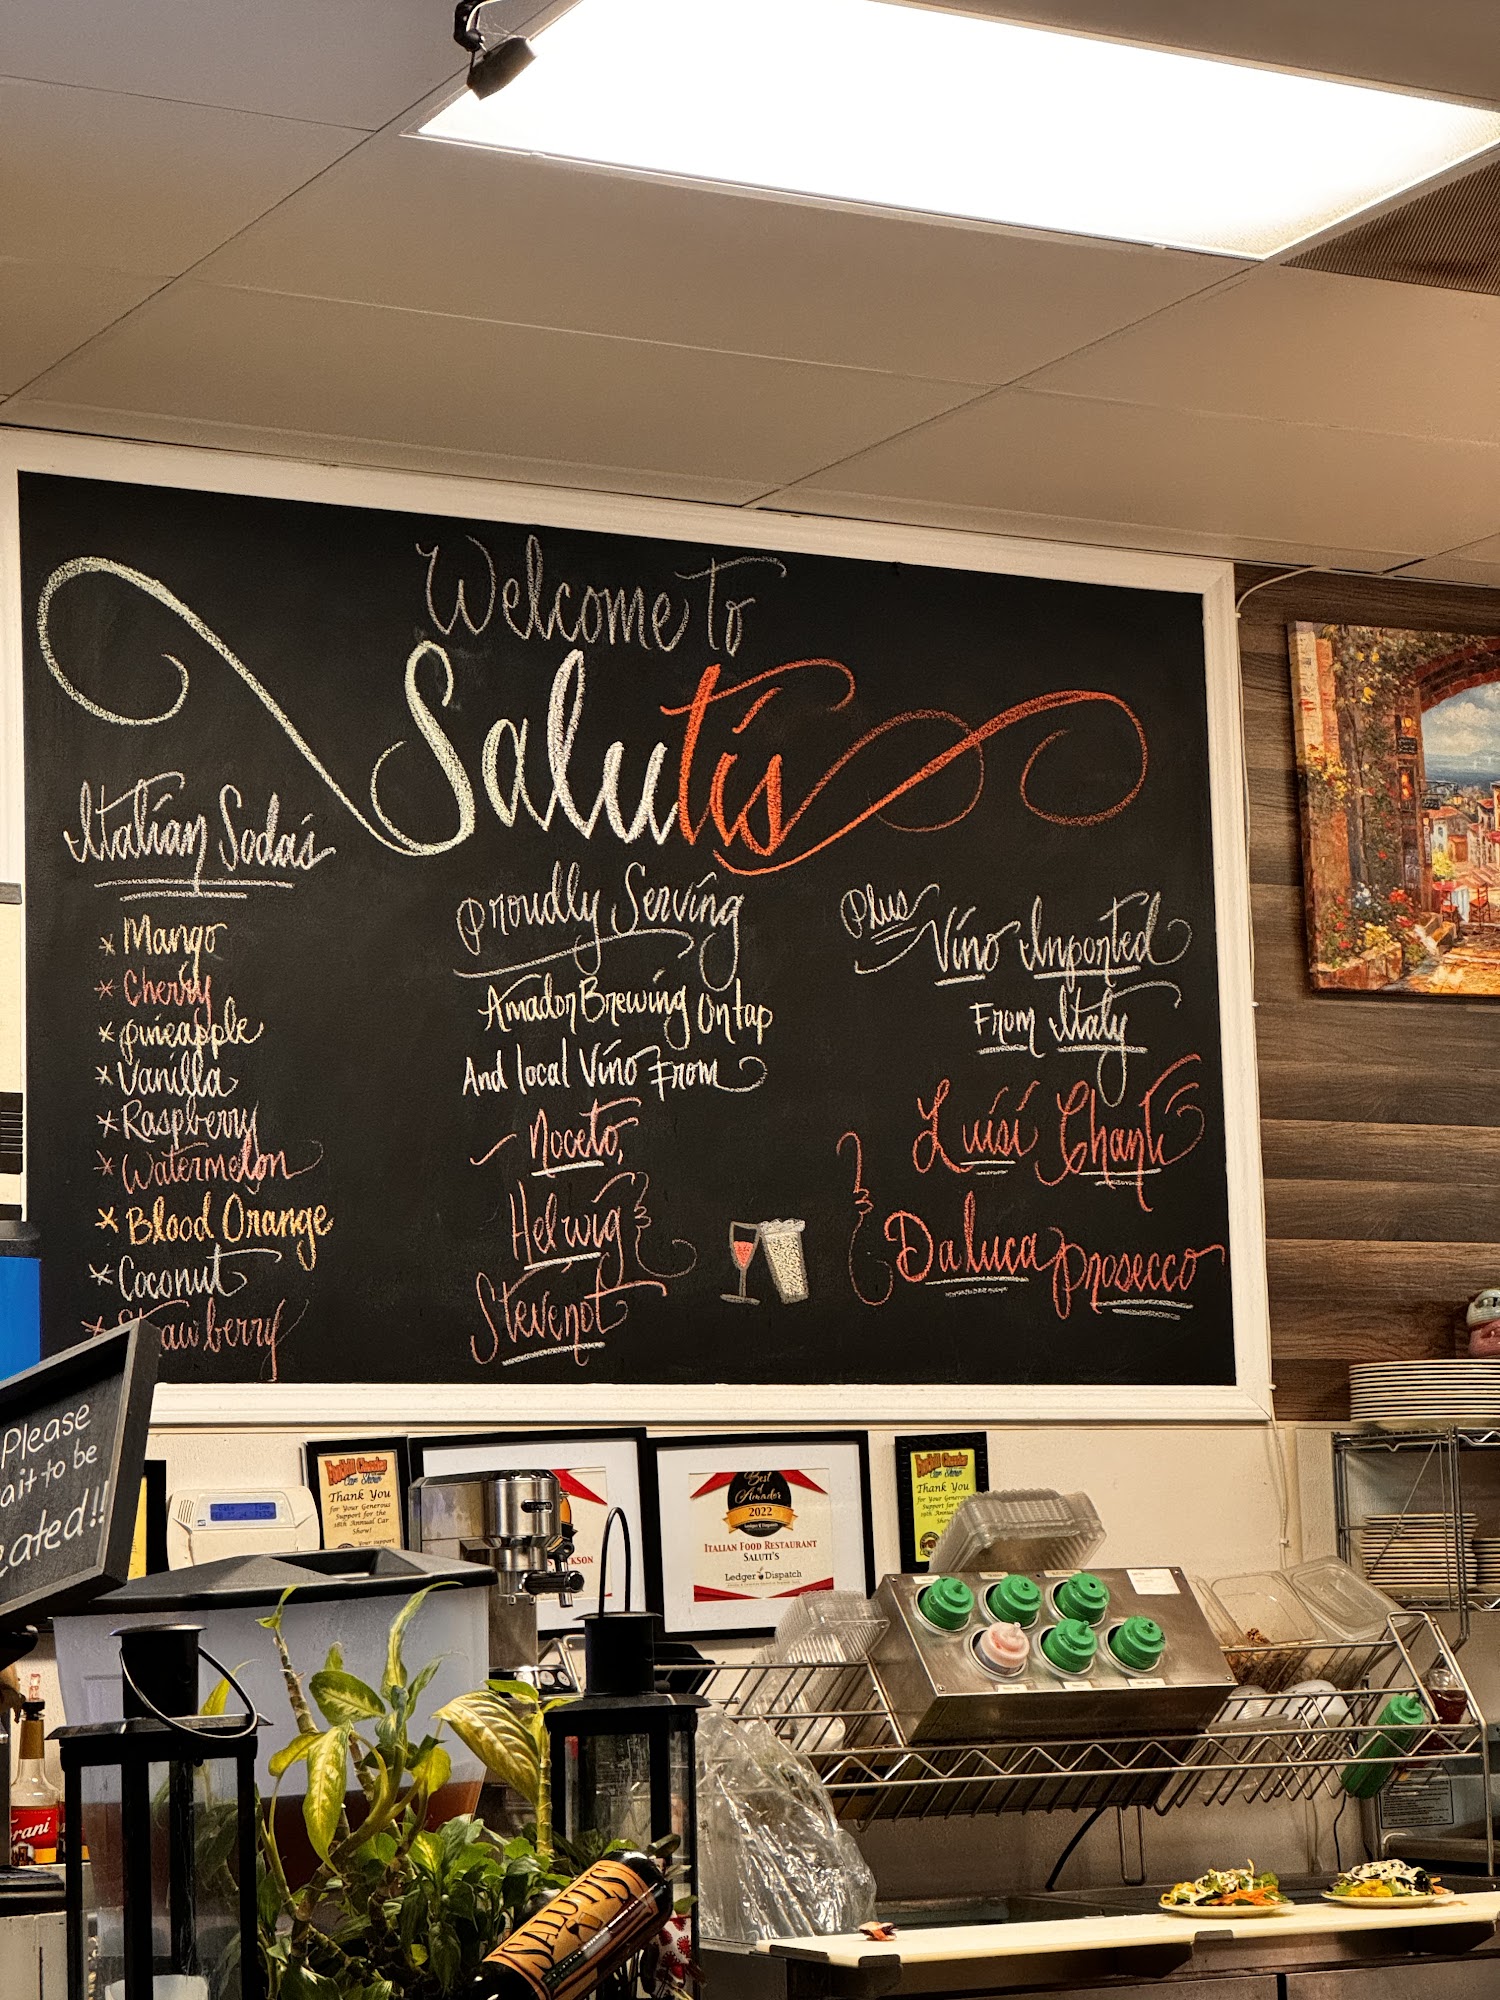 Welcome to
Salutis
Italian Soda's
* Mango
* Cherry
* Pineapple
* Vanilla
* Raspberry
* Watermelon
* Blood Orange
* Coconut
* Strawberry
Proudly Serving
Amador Brewing On tap
And local Vino From
Noceto,
Helwig
Stevenot
Plus Vino Imported
From Italy
Luisi Chanti
Daluca Prosecco
Please
ait to be
eated!!
Foothill Cruisers
Car Show
Thank You
for Your Generous
Support for the
Annual Car
Show!
KSON
Best
of
Amador
2022
ITALIAN FOOD RESTAURANT
SALUTI'S
Ledger Dispatch
Foothill Cruisers
Car Show
Thank You
for Your Generous
Support for the
Annual Car
Show!
rani
SALUTI'S